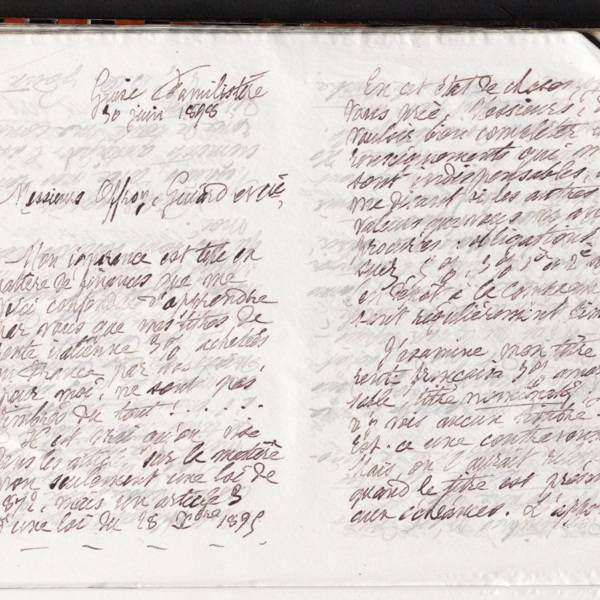 Guise Familistère
30 juin 1898
Messieurs Offroy, Guiard et Cie,
Mon ignorance est telle en
matière de finances que me
voici confondue d'apprendre
par vous que mes titres de
rente italienne 5% achetés
en France par vos
pour moi, ne sont pas
timbrés du tout ! . . . . .
Il est vrai qu'on vise
dans les articles sur la matière
non seulement une loi de
1872, mais un article 3
d'une loi du 28 Xbre 1895
En cet état de choses
vous prie, Messieurs,
vouloir bien compléter
renseignements qui
sont indispensables,
me disant si les autres
valeurs
procurées : obligations
en dépôt à la Compagnie
sont régulièrement
J'examine mon titre
rente française 3%
sable, titre nominatif
n'y vois aucun timbre.
Est-ce une contravention
Mais, on l'aurait
quand le titre est présenté
aux échéances.